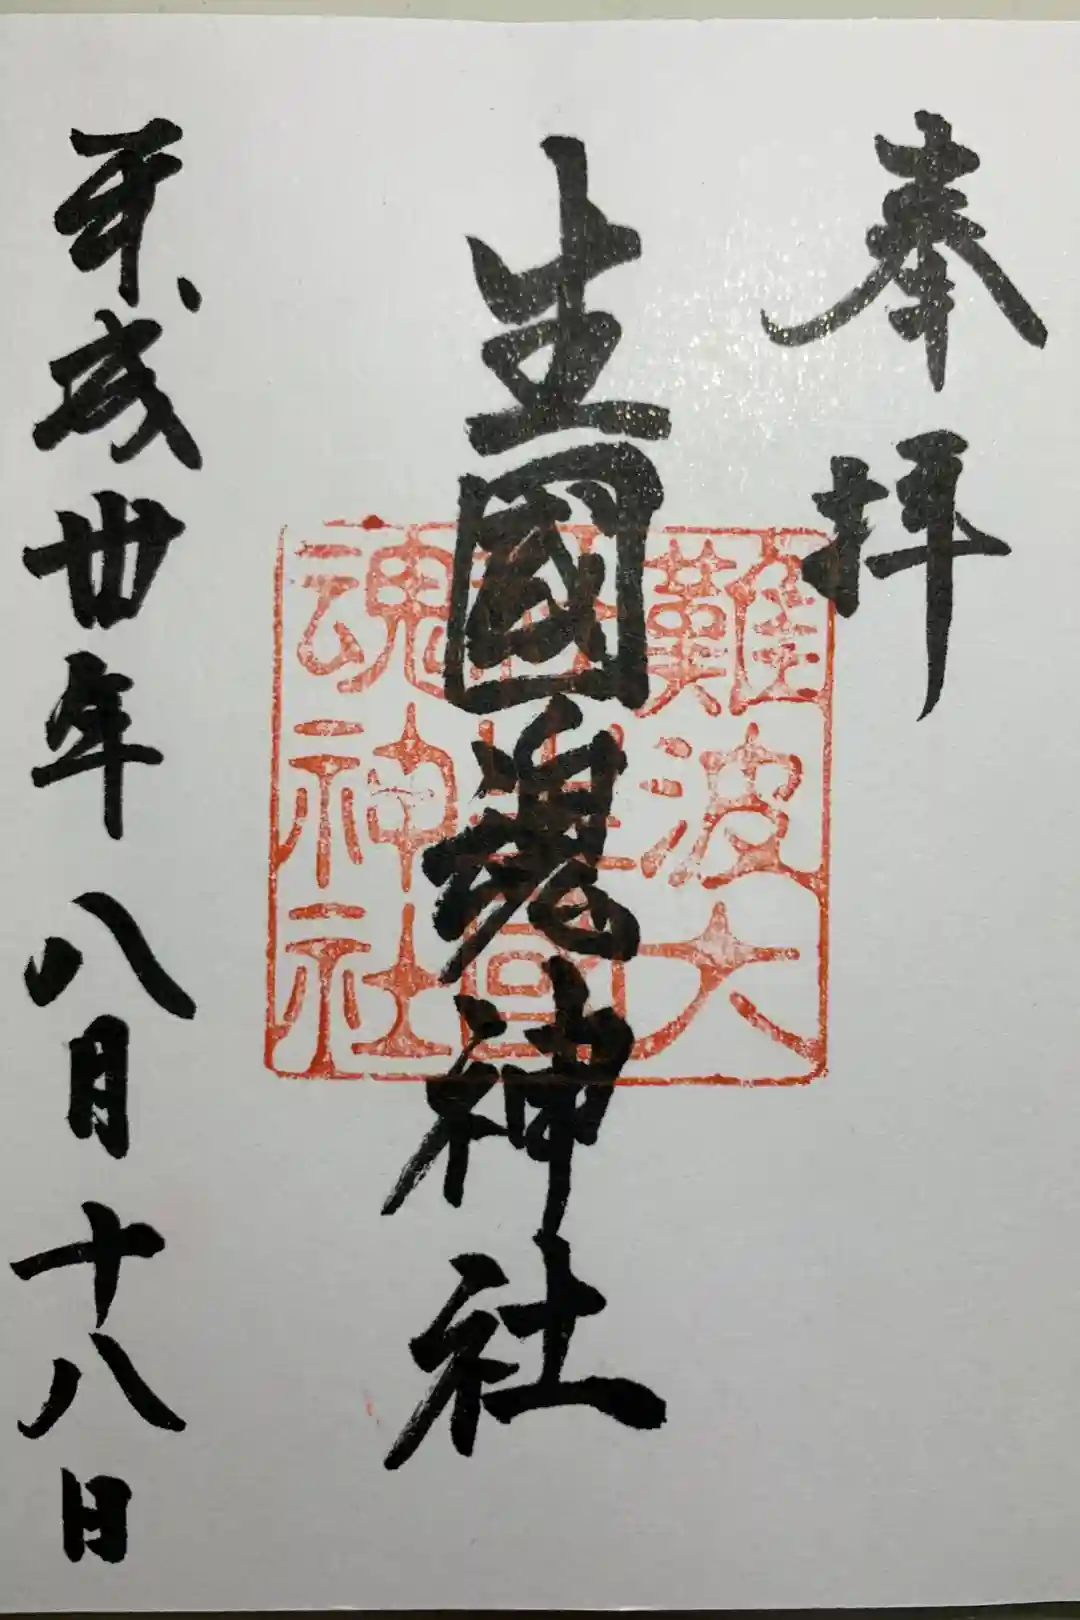 奉拝
生國魂神社
平成卅年八月十八日
難波大
社生國
魂神社